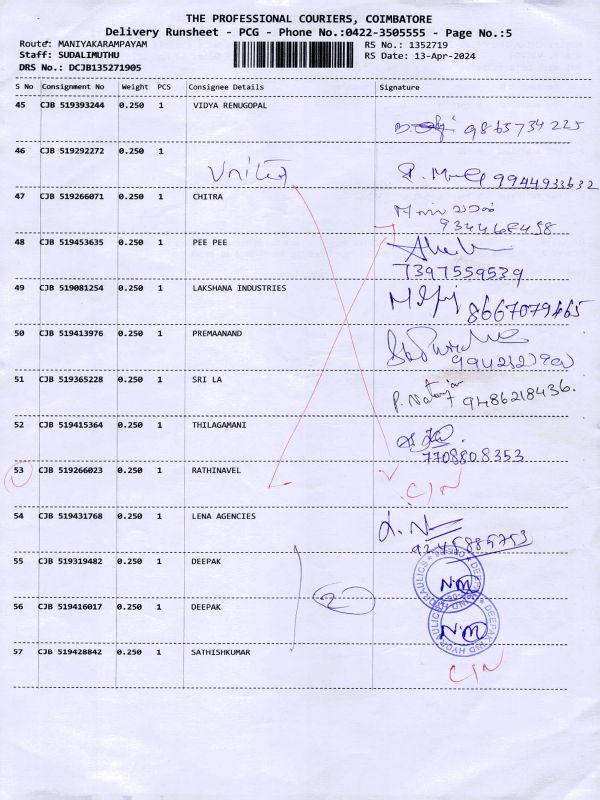 THE PROFESSIONAL COURIERS, COIMBATORE
Delivery Runsheet - PCG - Phone No.:0422-3505555 - Page No.:5
Route: MANIYAKARAMPAYAM
Staff: SUDALIMUTHU
DRS No.: DCJB135271905
RS No.: 1352719
RS Date: 13-Apr-2024
S No Consignment No Weight PCS Consignee Details Signature
45 CJB 519393244 0.250 1 VIDYA RENUGOPAL
9865734225
46 CJB 519292272 0.250 1
United 9944933632
47 CJB 519266071 0.250 1 CHITRA
9344468458
48 CJB 519453635 0.250 1 PEE PEE
7397559539
49 CJB 519081254 0.250 1 LAKSHANA INDUSTRIES
8667079465
50 CJB 519413976 0.250 1 PREMAANAND
51 CJB 519365228 0.250 1 SRI LA
P. Natarajan 9486218436.
52 CJB 519415364 0.250 1 THILAGAMANI
7708808353
53 CJB 519266023 0.250 1 RATHINAVEL
C/N
54 CJB 519431768 0.250 1 LENA AGENCIES
9245885753
55 CJB 519319482 0.250 1 DEEPAK
N.M
2
56 CJB 519416017 0.250 1 DEEPAK
N.M
DEEPAK IND HYDRAULICS
57 CJB 519428842 0.250 1 SATHISHKUMAR
C/N